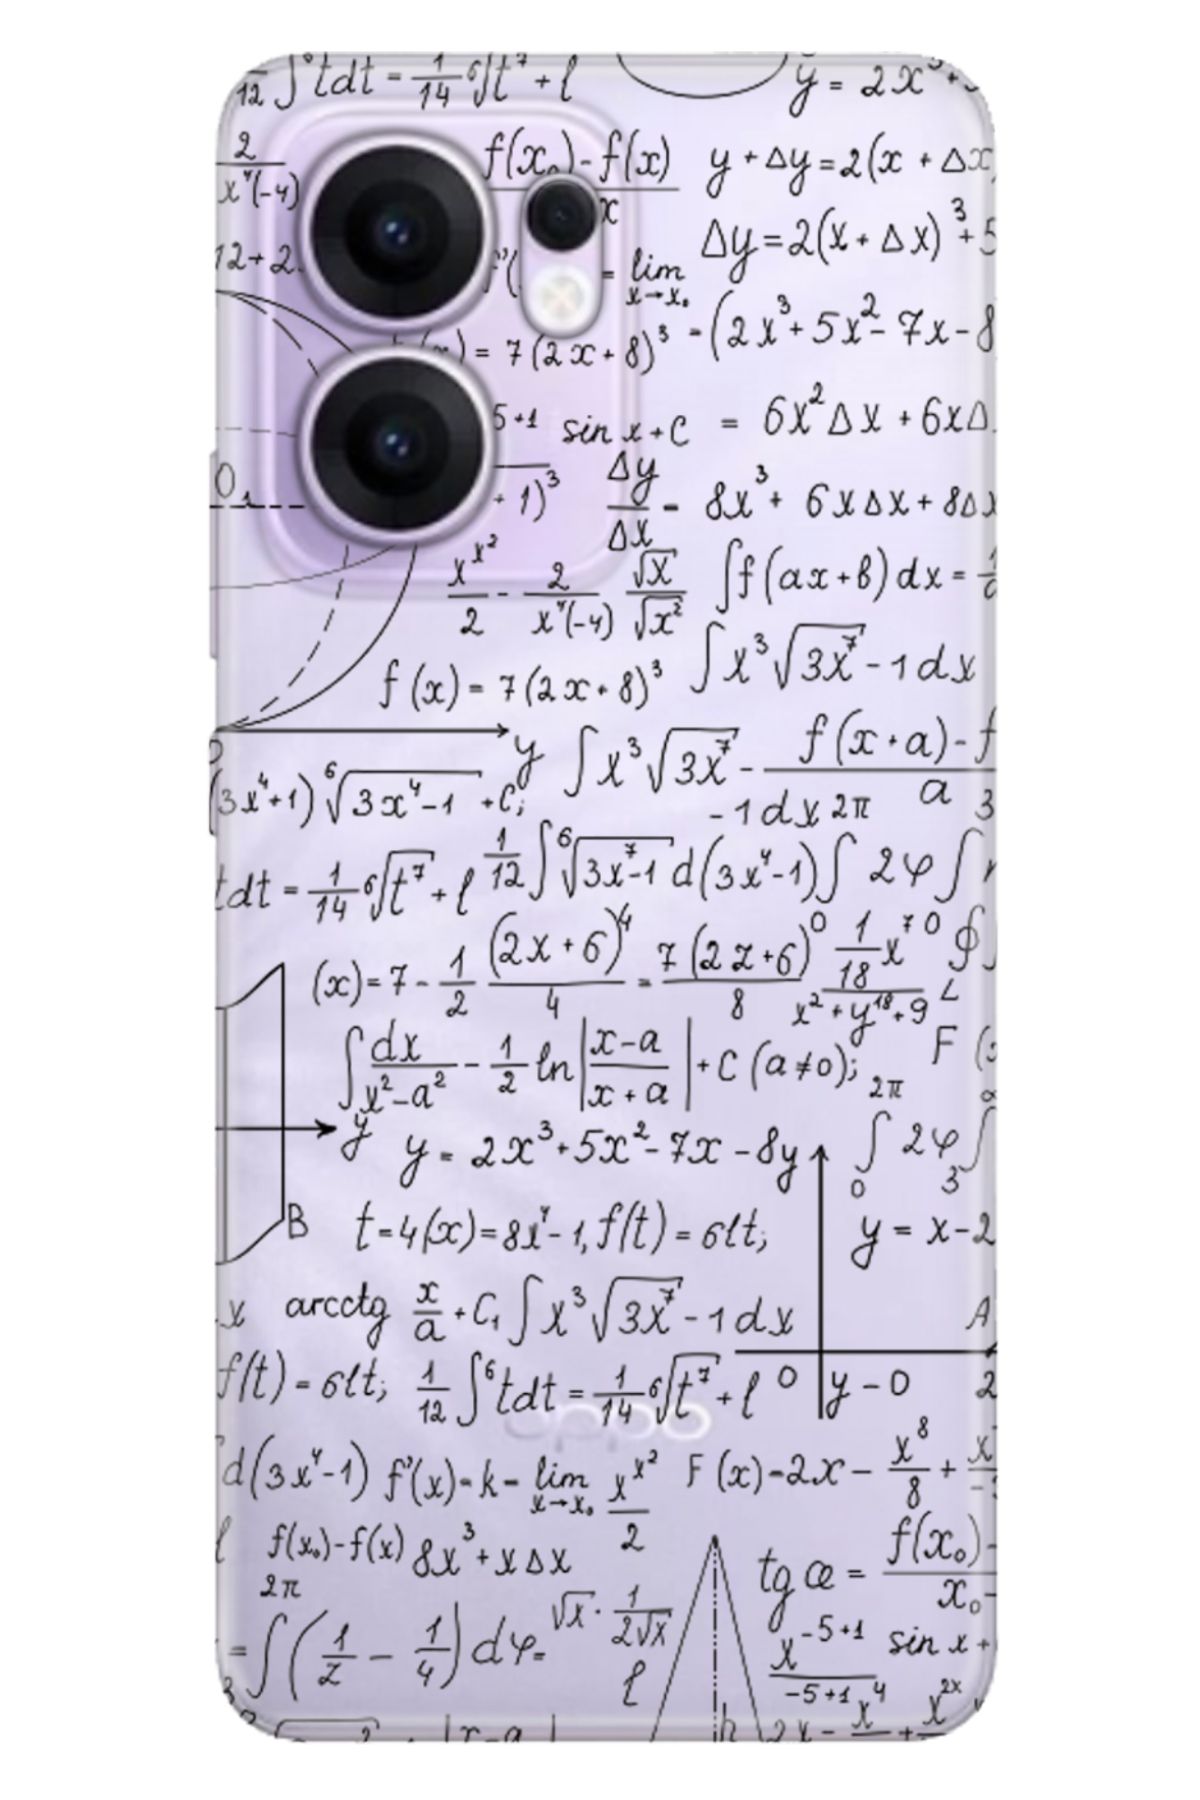 12 ∫ tdt = 1/14 ⁶√t⁷ + l
y = 2x³+
2/x⁴(-4)
f(x₀)-f(x)
y + Δy = 2(x + Δx
12+2
Δy = 2(x + Δx)³ + 5
= lim x→x₀
- (2x³ + 5x² - 7x - 8
) = 7(2x + 8)³
5+1 sin x + C = 6x²Δx + 6xΔ
+ 1)³ Δy/Δx - 8x³ + 6xΔx + 8Δx
x^x²/2 - 2/x⁴(-4) √x/√x² ∫f(ax+b)dx =
f(x) = 7(2x + 8)³ ∫x³√3x⁷ - 1 dx
y ∫x³√3x⁷ - f(x + a) - f
a
(3x⁴+1) ⁶√3x⁴-1 + C; - 1 dx 2π 3
tdt = 1/14 ⁶√t⁷ + l 1/12 ∫ ⁶√3x⁷-1 d(3x⁴-1) ∫ 2φ ∫
(x) = 7 - 1/2 (2x+6)⁴/4 = 7(2z+6)⁰/8 1/18 x⁷⁰ ∮
x² + y¹⁸ + 9 L
∫dx/x²-a² - 1/2 ln|x-a/x+a| + C (a≠0); F (
2π
y
y = 2x³ + 5x² - 7x - 8y ∫ 2φ ∫
0 3
B t = 4(x) = 8x⁴ - 1, f(t) = 6lt; y = x - 2
x arcctg x/a + C₁ ∫x³√3x⁷ - 1 dx A
f(t) = 6lt; 1/12 ∫⁶tdt = 1/14 ⁶√t⁷ + l 0 y - 0 2
oppo
d(3x⁴-1) f'(x) = k = lim x→x₀ x^x²/2 F(x) = 2x - x⁸/8 +
l f(x₀)-f(x) 8x³ + xΔx
tg œ = f(x₀)-
x₀-
2π
= ∫(1/z - 1/4) dφ = √x · 1/2√x
x^-5+1/-5+1 sin x +
l
3
x-a h 2x - x⁴ + x²ˣ